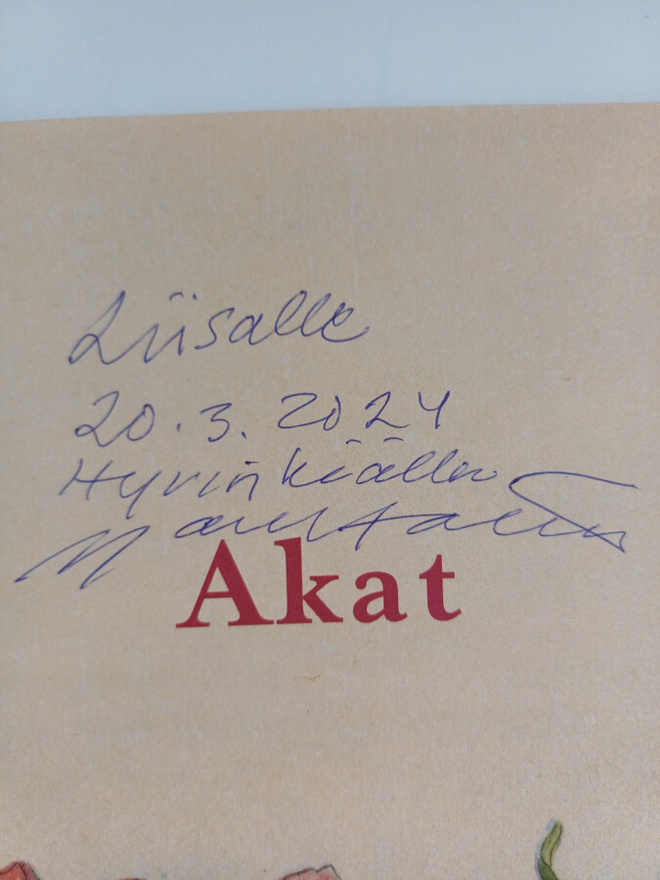 Liisalle
20.3.2024
Hyvinkäällä
Akat